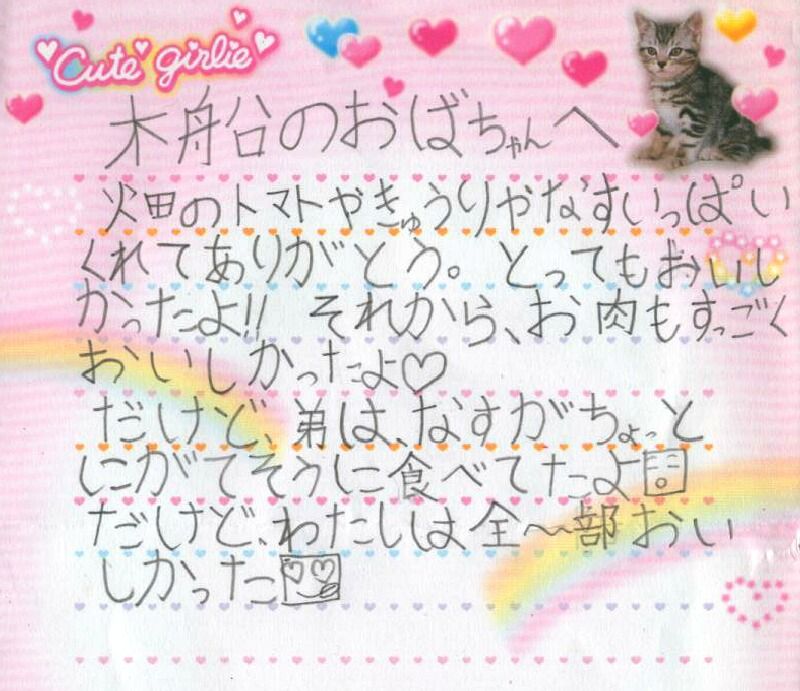 Cute girlie
木船谷のおばちゃんへ
畑田のトマトやきゅうりやなすいっぱい
くれてありがとう。とってもおいし
かったよ!! それから、お肉もすっごく
おいしかったよ♡
だけど、弟は、なすがちょっと
にがてそうに食べてたよ
だけど、わたしは全〜部おい
しかった